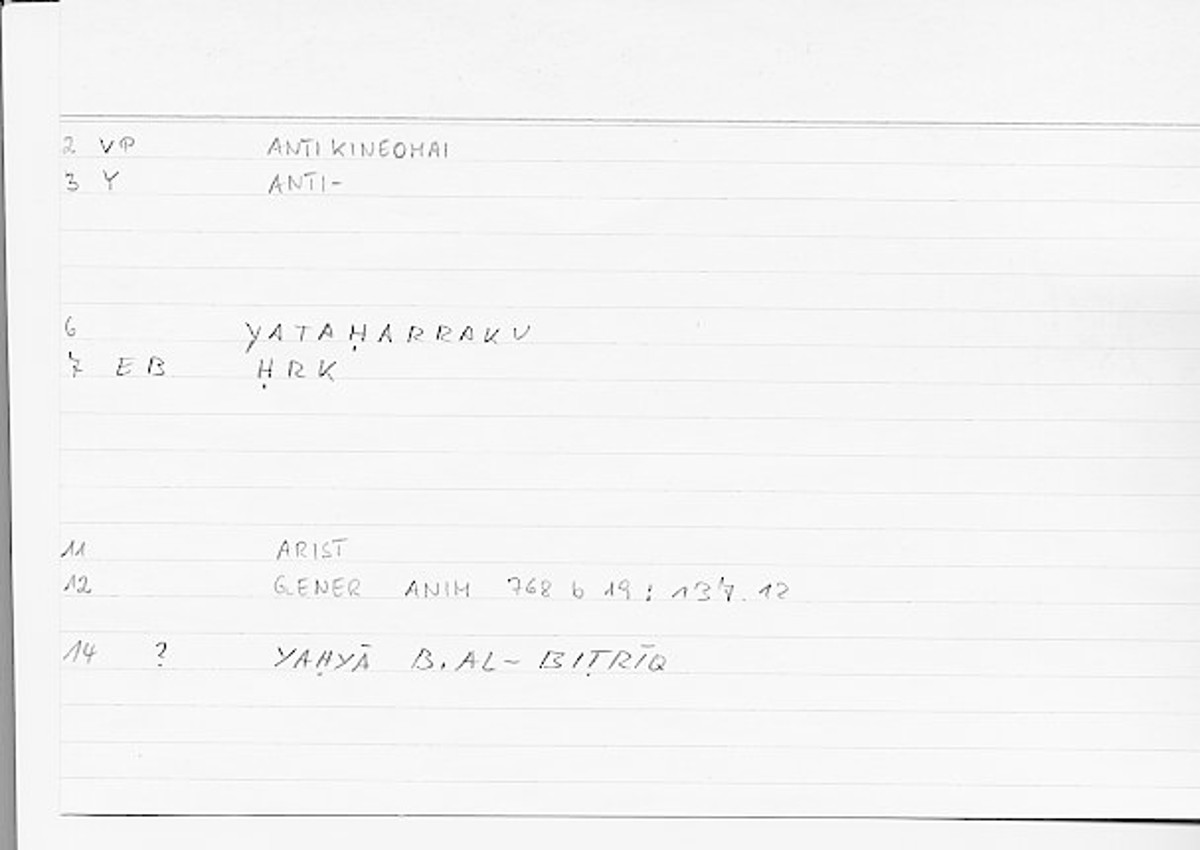 2 VP ANTIKINEOMAI
3 Y ANTI-
6 YATAḤARRAKU
7 EB ḤRK
11 ARIST
12 GENER ANIM 768 b 19 : 137.12
14 ? YAḤYĀ B. AL- BIṬRĪQ